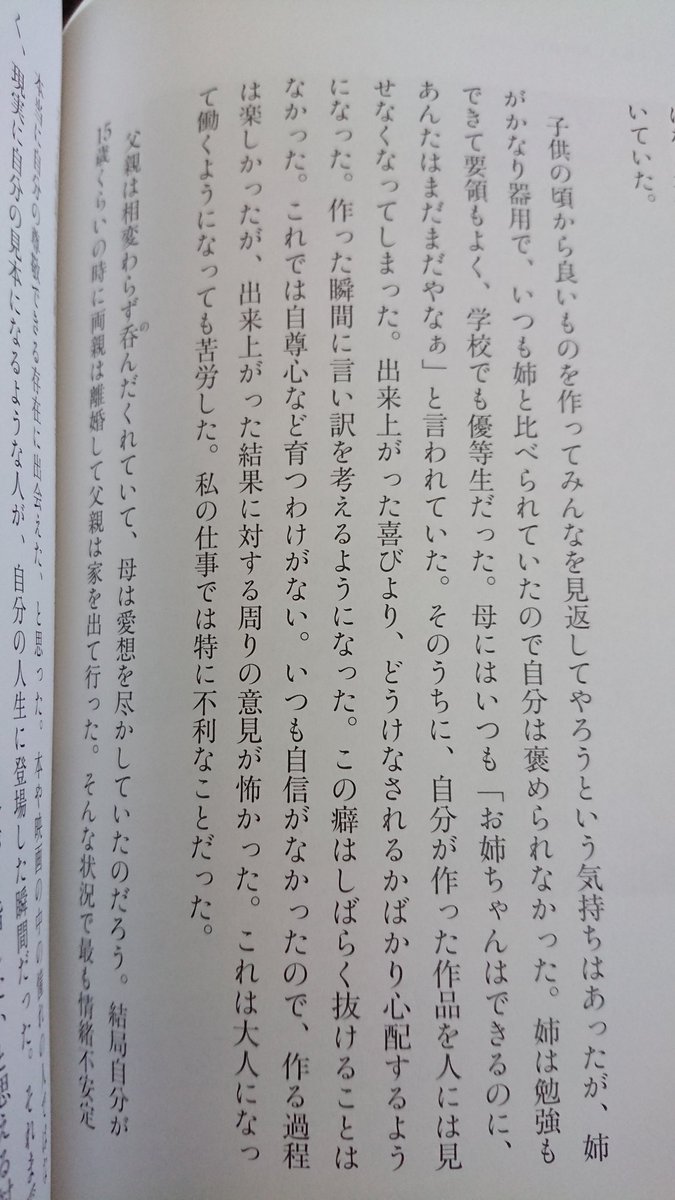 いていた。
子供の頃から良いものを作ってみんなを見返してやろうという気持ちはあったが、姉
がかなり器用で、いつも姉と比べられていたので自分は褒められなかった。姉は勉強も
できて要領もよく、学校でも優等生だった。母にはいつも「お姉ちゃんはできるのに、
あんたはまだまだやなぁ」と言われていた。そのうちに、自分が作った作品を人には見
せなくなってしまった。出来上がった喜びより、どうけなされるかばかり心配するよう
になった。作った瞬間に言い訳を考えるようになった。この癖はしばらく抜けることは
なかった。これでは自尊心など育つわけがない。いつも自信がなかったので、作る過程
は楽しかったが、出来上がった結果に対する周りの意見が怖かった。これは大人になっ
て働くようになっても苦労した。私の仕事では特に不利なことだった。
父親は相変わらず呑んだくれていて、母は愛想を尽かしていたのだろう。結局自分が
の
15歳くらいの時に両親は離婚して父親は家を出て行った。そんな状況で最も情緒不安定
本当に自分の尊敬できる存在に出会えた、と思った。本や映画の中の憧れの人
く、現実に自分の見本になるような人が、自分の人生に登場した瞬間だった。それま